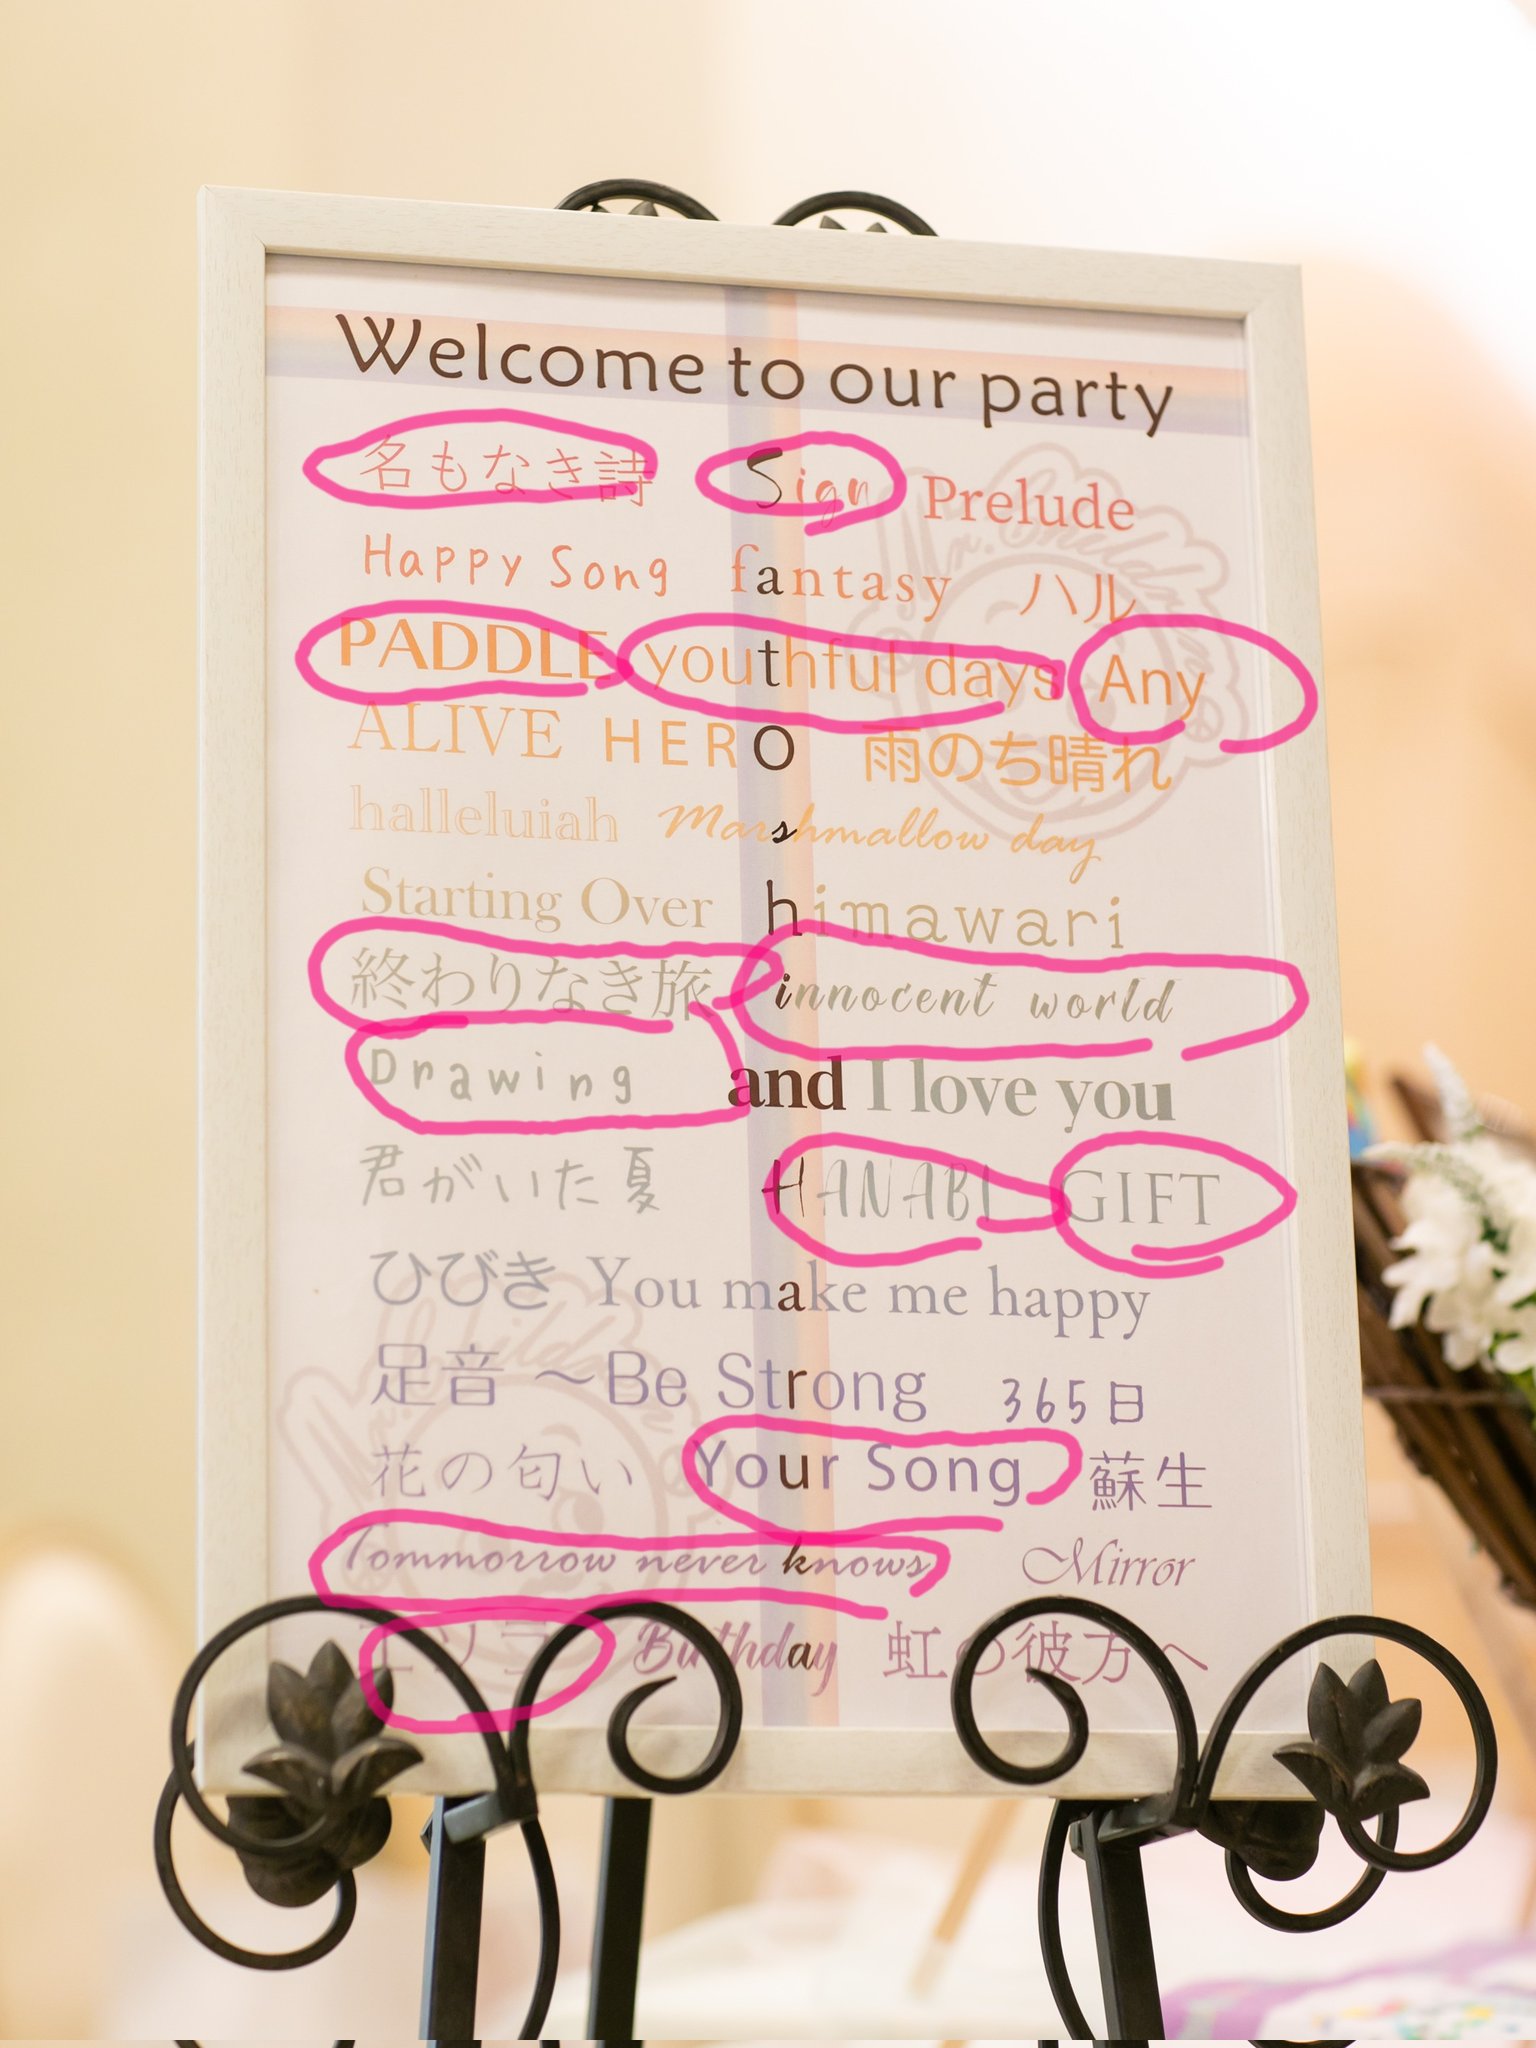 Welcome to our party
名もなき詩 Sign Prelude
Happy Song fantasy ハル
PADDLE youthful days Any
ALIVE HERO 雨のち晴れ
halleluiah Marshmallow day
Starting Over himawari
終わりなき旅 innocent world
Drawing and I love you
君がいた夏 HANABI GIFT
ひびき You make me happy
足音 〜Be Strong 365日
花の匂い Your Song 蘇生
Tommorrow never knows Mirror
エソラ Birthday 虹の彼方へ